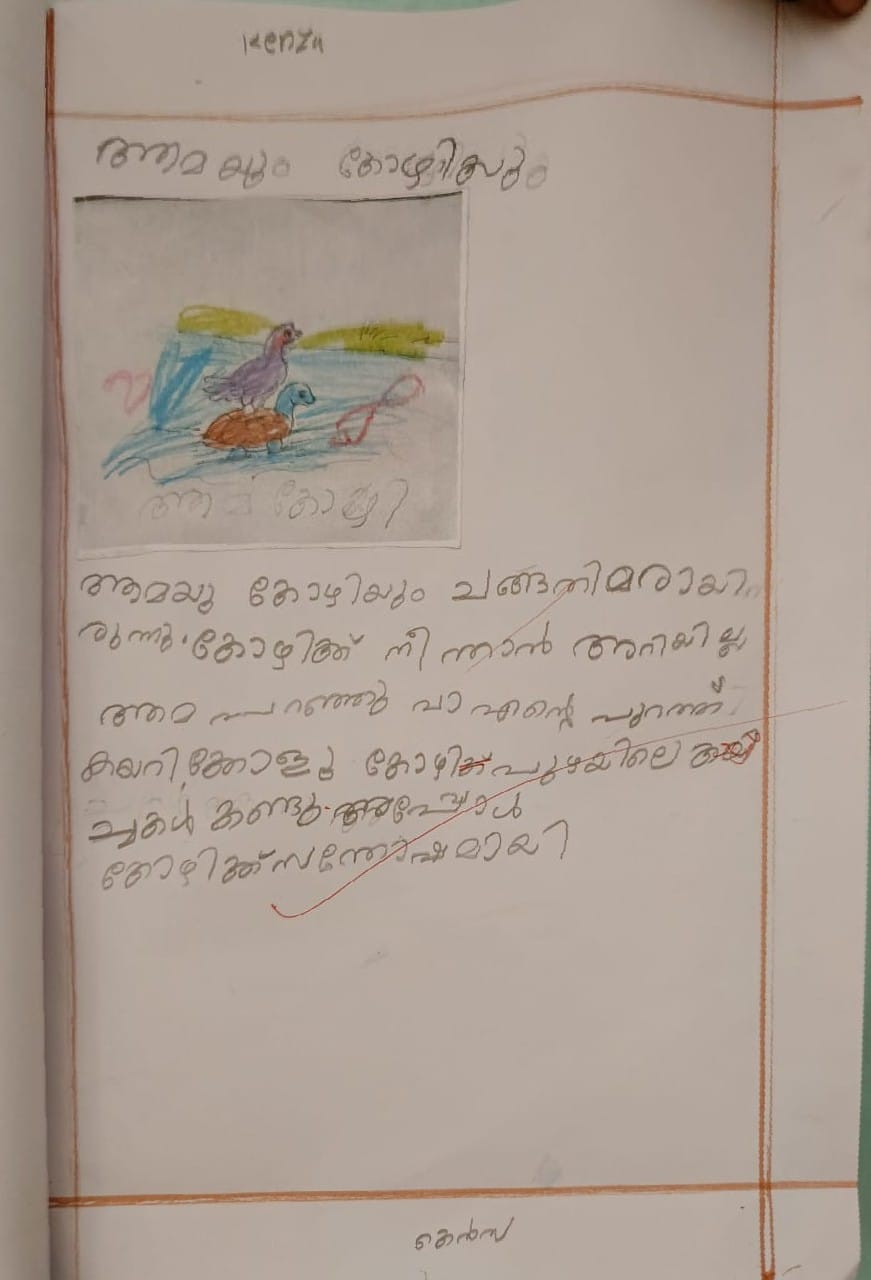 Kenza
ആമയും കോഴിയും
ആമ കോഴി
ആമയു കോഴിയും ചങ്ങതിമരായി
രുന്നു. കോഴിക്ക് നീന്താൻ അറിയില്ല
ആമ പറഞ്ഞു വാ എന്റെ പുറത്ത്
കയറിക്കോളൂ കോഴി പുഴയിലെ
ചുകൾ കണ്ടു. അപ്പോൾ
കോഴിക്ക് സന്തോഷമായി
കെൻസ